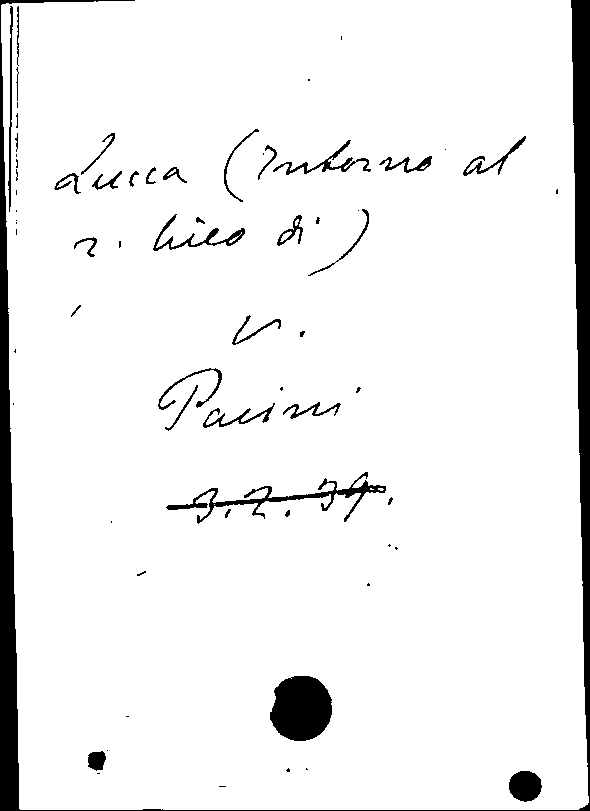 Lucca (Intorno al
r. liceo di)
v.
Pacini
3.2.39.